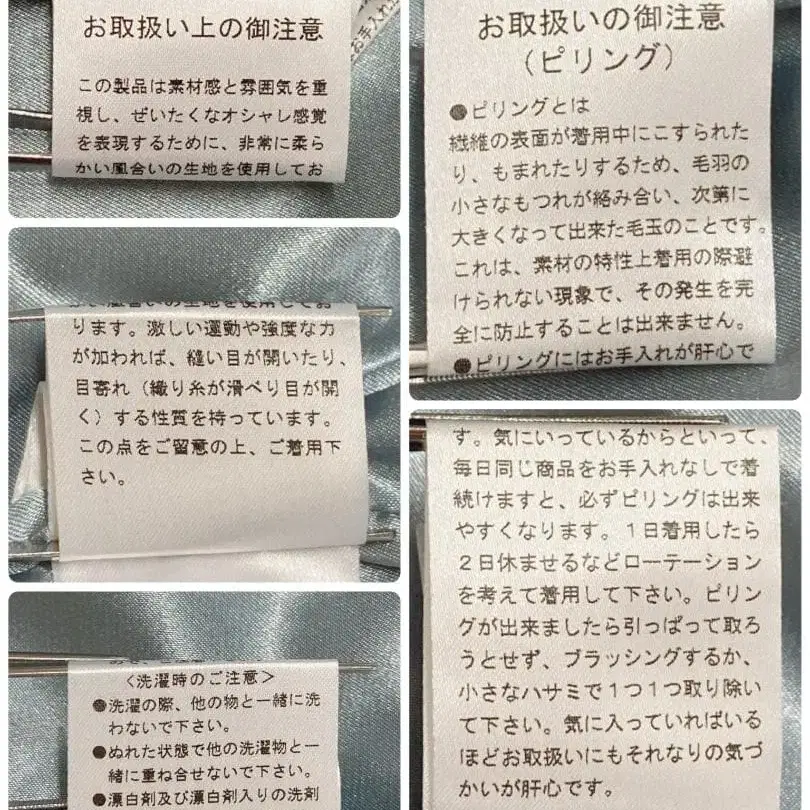 お取扱い上の御注意
この製品は素材感と雰囲気を重
視し、ぜいたくなオシャレ感覚
を表現するために、非常に柔ら
かい風合いの生地を使用してお
お手入れ
かい風合いの生地を使用してお
ります。激しい運動や強度な力
が加われば、縫い目が開いたり、
目寄れ（織り糸が滑べり目が開
く）する性質を持っています。
この点をご留意の上、ご着用下
さい。
＜洗濯時のご注意＞
●洗濯の際、他の物と一緒に洗
わないで下さい。
●ぬれた状態で他の洗濯物と一
緒に重ね合せないで下さい。
●漂白剤及び漂白剤入りの洗剤
お取扱いの御注意
（ピリング）
●ピリングとは
繊維の表面が着用中にこすられた
り、もまれたりするため、毛羽の
小さなもつれが絡み合い、次第に
大きくなって出来た毛玉のことです。
これは、素材の特性上着用の際避
けられない現象で、その発生を完
全に防止することは出来ません。
●ピリングにはお手入れが肝心で
す。気にいっているからといって、
毎日同じ商品をお手入れなしで着
続けますと、必ずピリングは出来
やすくなります。１日着用したら
２日休ませるなどローテーション
を考えて着用して下さい。ピリン
グが出来ましたら引っぱって取ろ
うとせず、ブラッシングするか、
小さなハサミで１つ１つ取り除い
て下さい。気に入っていればいる
ほどお取扱いにもそれなりの気づ
かいが肝心です。